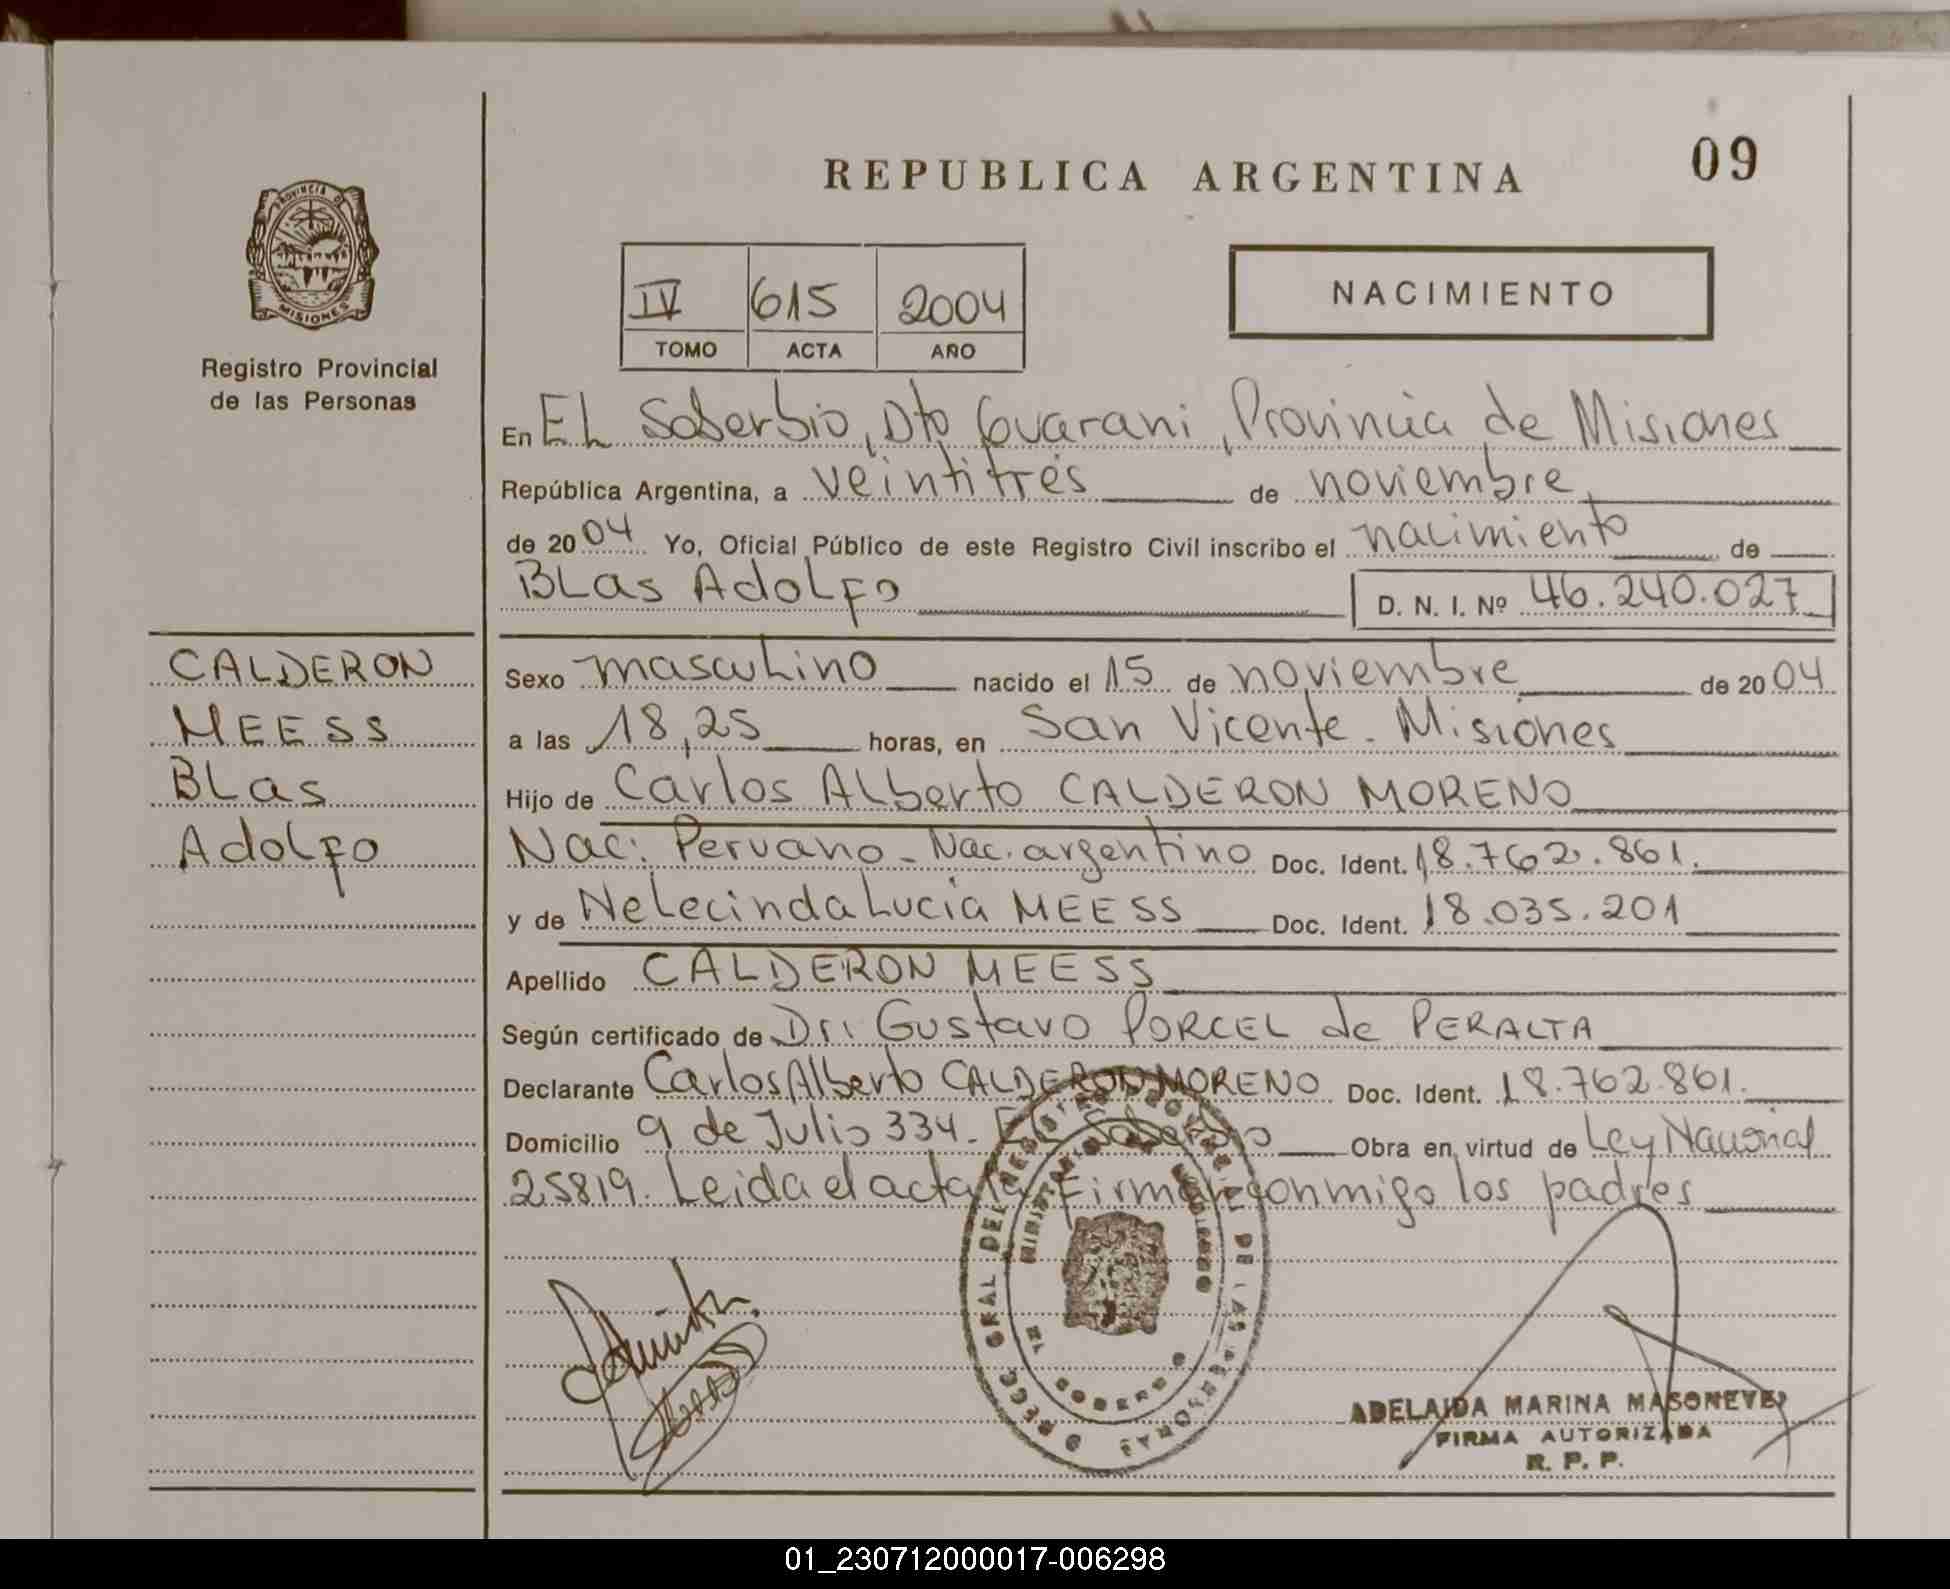 REPUBLICA ARGENTINA
09
PROVINCIA DE
MISIONES
Registro Provincial
de las Personas
IV 615 2004
TOMO ACTA AÑO
NACIMIENTO
En EL Soberbio, Dto Guarani, Provincia de Misiones
República Argentina, a veintitrés de noviembre
de 2004 Yo, Oficial Público de este Registro Civil inscribo el nacimiento de
BLas AdoLfo D. N. I. Nº 46.240.027
CALDERON
MEESS
BLas
AdoLfo
Sexo mascuLino nacido el 15 de noviembre de 2004
a las 18,25 horas, en San Vicente - Misiones
Hijo de Carlos ALberto CALDERON MORENO
Nac: Peruano - Nac. argentino Doc. Ident. 18.762.861.
y de NeLecinda Lucia MEESS Doc. Ident. 18.035.201
Apellido CALDERON MEESS
Según certificado de Dr: Gustavo PORCEL de PERALTA
Declarante Carlos Alberto CALDERON MORENO Doc. Ident. 18.762.861.
Domicilio 9 de Julio 334. EL Soberbio Obra en virtud de Ley Nacional
25819. Leida el acta la Firman conmigo los padres
GRAL DEL REGISTRO DE LAS PERSONAS
MINISTERIO DE GOBIERNO
ADELAIDA MARINA MASONEVE
FIRMA AUTORIZADA
R. P. P.
01_230712000017-006298